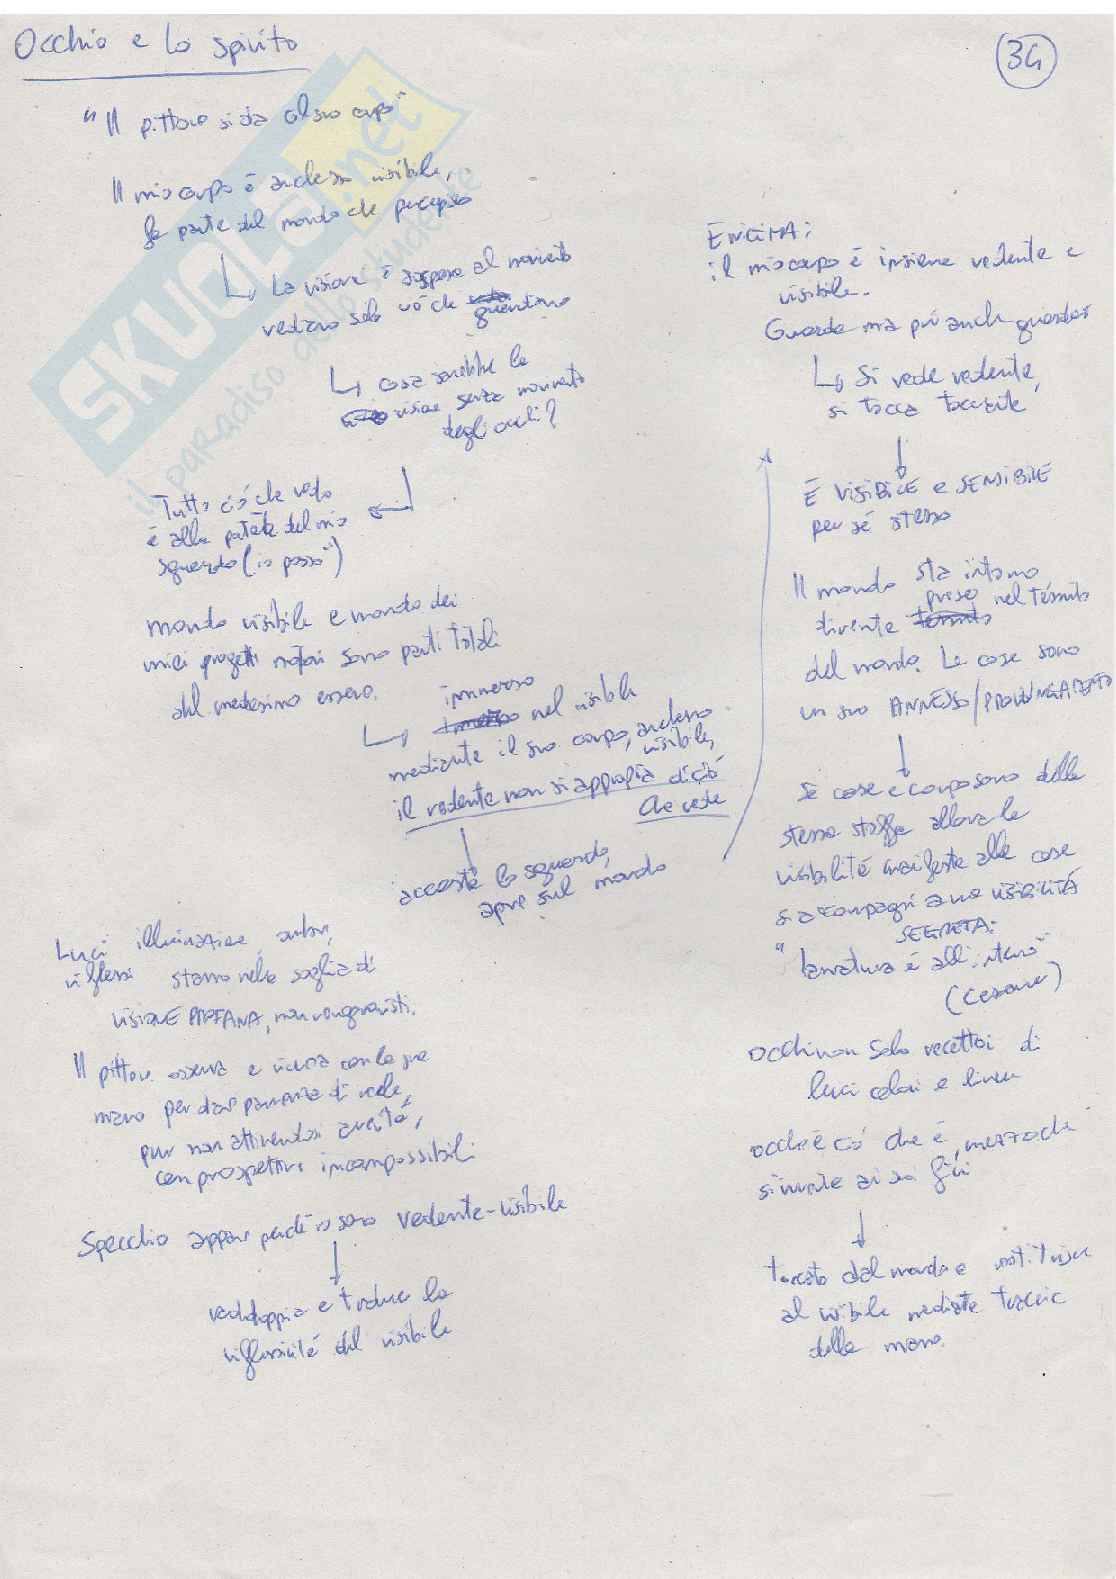 Occhio e lo spirito
34
"Il pittore si dà al suo corpo"
Il mio corpo è anch'esso visibile,
fa parte del mondo che percepisco
↳ La visione è sospesa al movimento
vediamo solo ciò che guardiamo
↳ cosa sarebbe la
visione senza movimento
degli occhi?
Tutto ciò che vedo
è alla portata del mio
sguardo ("io posso")
mondo visibile e mondo dei
miei progetti motori sono parti totali
del medesimo essere.
↳ immerso nel visibile
mediante il suo corpo, anch'esso
visibile,
il vedente non si appropria di ciò
che vede
accosta lo sguardo,
apre sul mondo
ENIGMA:
il mio corpo è insieme vedente e
visibile.
Guarda ma può anche guardarsi
↳ Si vede vedente,
si tocca toccante
È VISIBILE e SENSIBILE
per sé stesso
Il mondo sta intorno
diventa preso nel tessuto
del mondo. Le cose sono
un suo ANNESSO/PROLUNGAMENTO
Se cose e corpo sono della
stessa stoffa allora la
visibilità manifesta alle cose
si accompagni a una visibilità
SEGRETA:
"la natura è all'interno"
(Cezanne)
Occhi non solo recettori di
luci colori e linee
occhio è ciò che è, mezzo che
si muove ai suoi fini
toccato dal mondo e restituisce
al visibile mediante tracce
della mano.
Luci illuminazione, ombre,
riflessi stanno nella soglia di
VISIONE PROFANA, non vengono visti.
Il pittore osserva e ricrea con la sua
mano per dare parvenza di reale,
pur non attinendosi a verità,
con prospettive incompossibili
Specchio appare perché io sono vedente-visibile
raddoppia e traduce la
riflessività del visibile
SKUOLA.net
il paradiso dello studente